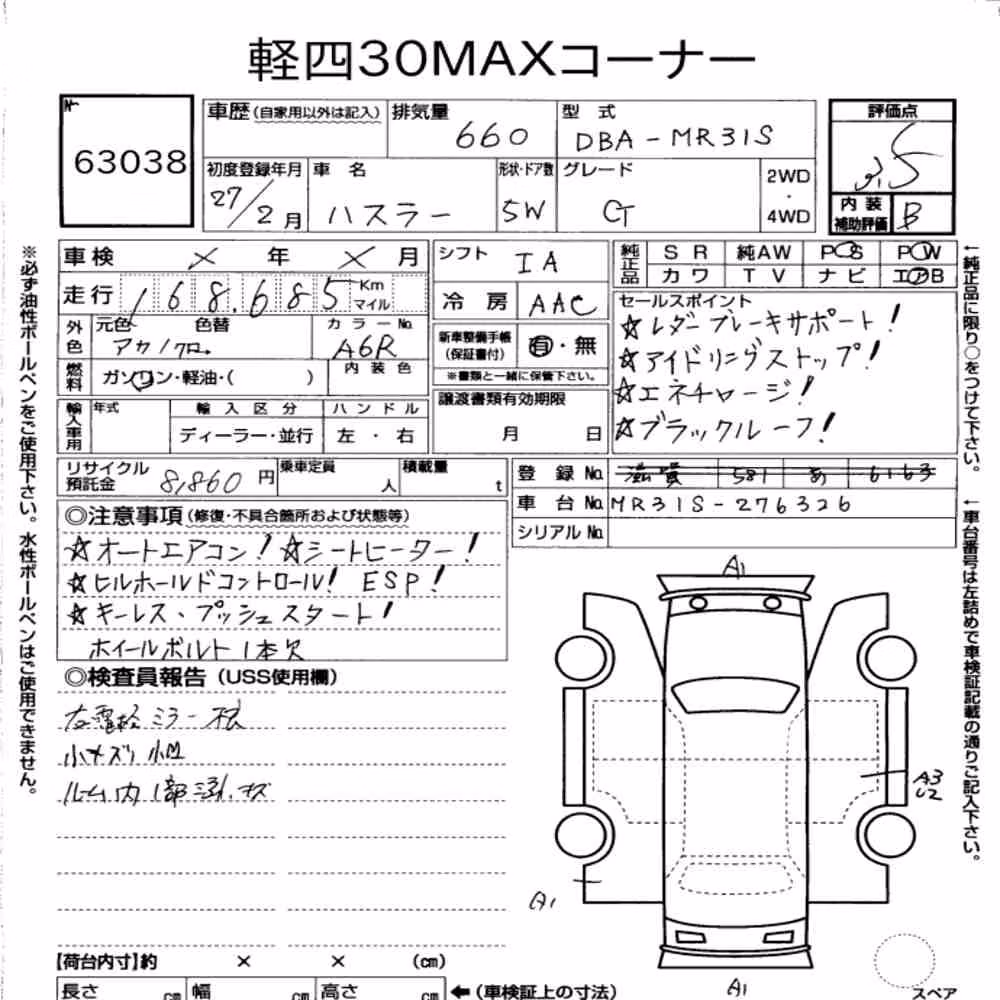 軽四30MAXコーナー
№
63038
車歴(自家用以外は記入)
排気量
660
型 式
DBA-MR31S
評価点
3.5
初度登録年月
27/2月
車 名
ハスラー
形状・ドア数
5W
グレード
G
2WD
・
4WD
内 装
補助評価
B
車検 × 年 × 月
シフト
IA
純正品
SR 純AW PS PW
カワ TV ナビ エアB
走行
168,685
Km
マイル
冷 房
AAC
セールスポイント
☆レダーブレーキサポート!
☆アイドリングストップ!
☆エネチャージ!
☆ブラックルーフ!
外色
元色 色替
アカ/クロ
カラーNo.
A6R
新車整備手帳
(保証書付)
有・無
※書類と一緒に保管下さい。
燃料
ガソリン・軽油・( )
内 装 色
譲渡書類有効期限
月 日
輸入車用
年式
輸 入 区 分
ディーラー・並行
ハ ン ド ル
左 ・ 右
リサイクル
預託金
8,860 円
乗車定員
人
積載量
t
登 録 No. 滋賀 581 あ 6163
車 台 No. MR31S-276326
シリアル No.
◎注意事項(修復・不具合箇所および状態等)
☆オートエアコン!☆シートヒーター!
☆ヒルホールドコントロール! ESP!
☆キーレス、プッシュスタート!
ホイールボルト1本欠
◎検査員報告(USS使用欄)
小キズ 小凹
※必ず油性ボールペンをご使用下さい。水性ボールペンはご使用できません。
←純正品に限り○をつけて下さい。
←車台番号は左詰めで車検証記載の通りご記入下さい。
A1
A3
U2
A1
A1
【荷台内寸】約 × × (cm)
長さ cm 幅 cm 高さ cm
←(車検証上の寸法)
スペア